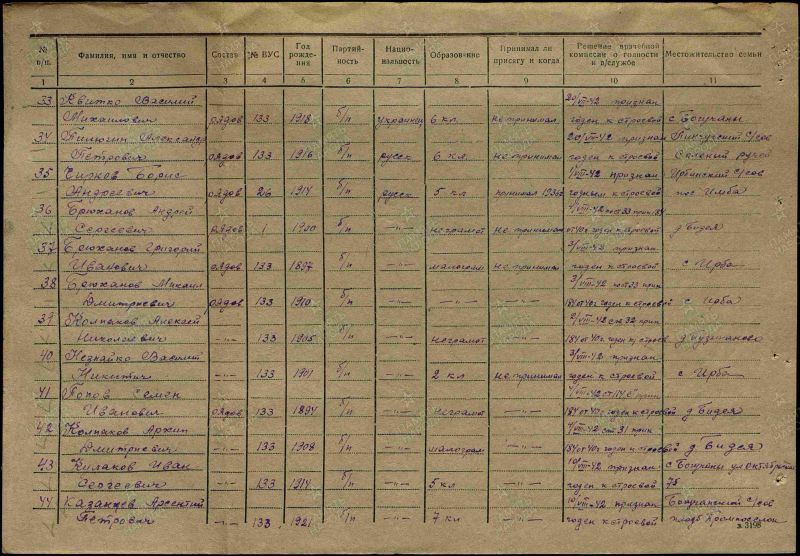 № п/п. Фамилия, имя и отчество Состав № ВУС Год рождения Партийность Национальность Образование Принимал ли присягу и когда Решение врачебной комиссии о годности к в/службе Местожительство семьи
1 2 3 4 5 6 7 8 9 10 11
33 Квитко Василий 20/VIII-42 признан
Михаилович рядов 133 1918 б/п украинец 6 кл. не принимал годен к строевой с Богучаны
34 Пилюгин Александр 20/VIII-42 признан Пинчугский с/сов
Петрович рядов 133 1916 б/п русск 6 кл. не принимал годен к строевой Соленый ручей
35 Чирков Борис /VIII-42 признан Ирбинский с/сов
Андреевич рядов 26 1914 б/п русск 5 кл принимал годным к строевой пос Имба
36 Брюханов Андрей /VIII-42 пост 33 прик 184
Сергеевич рядов 1 1900 б/п -"- неграмот не принимал от 40г годен к строевой д Бидея
37 Брюханов Григорий 3/VIII-42 признан
Иванович рядов 133 1897 б/п -"- малограм не принимал годен к строевой с Ирба
38 Брюханов Михаил 3/VIII-42 пост 33
Дмитриевич рядов 133 1910 б/п -"- -"- -"- 184 от 40г годен к строевой с Ирба
39 Колпаков Алексей 2/VIII-42 ст 32 прик
Николаевич -"- 133 1905 б/п -"- неграмот -"- 184 от 40г годен к строев
40 Незнайко Василий 3/VIII-42 признан
Никитич -"- 133 1901 б/п -"- 2 кл не принимал годен к строевой с Ирба
41 Попов Семен 4/VIII-42
Иванович рядов 133 1894 б/п -"- неграмот -"- 184 от 40г годен к строевой д Бидея
42 Колпаков Архип 4/VIII-42 ст 31 прик
Дмитриевич -"- 133 1908 б/п -"- малограм -"- 184 от 40г годен к строевой д Бидея
43 Кулаков Иван 10/VIII-42 признан с Богучаны ул октябрьская
Сергеевич -"- 133 1914 б/п -"- 5 кл -"- годен к строевой 75
44 Казанцев Арсентий 10/VIII-42 признан Богучанский с/сов
Петрович -"- 133 1921 б/п -"- 7 кл -"- годен к строевой
з. 3198